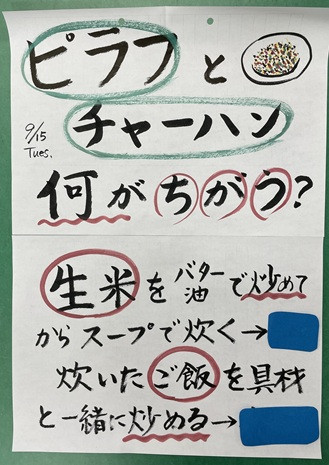 ピラフと
9/15
Tues.
チャーハン
何がちがう?
生米をバター油で炒めて
からスープで炊く→
炊いたご飯を具材
と一緒に炒める→